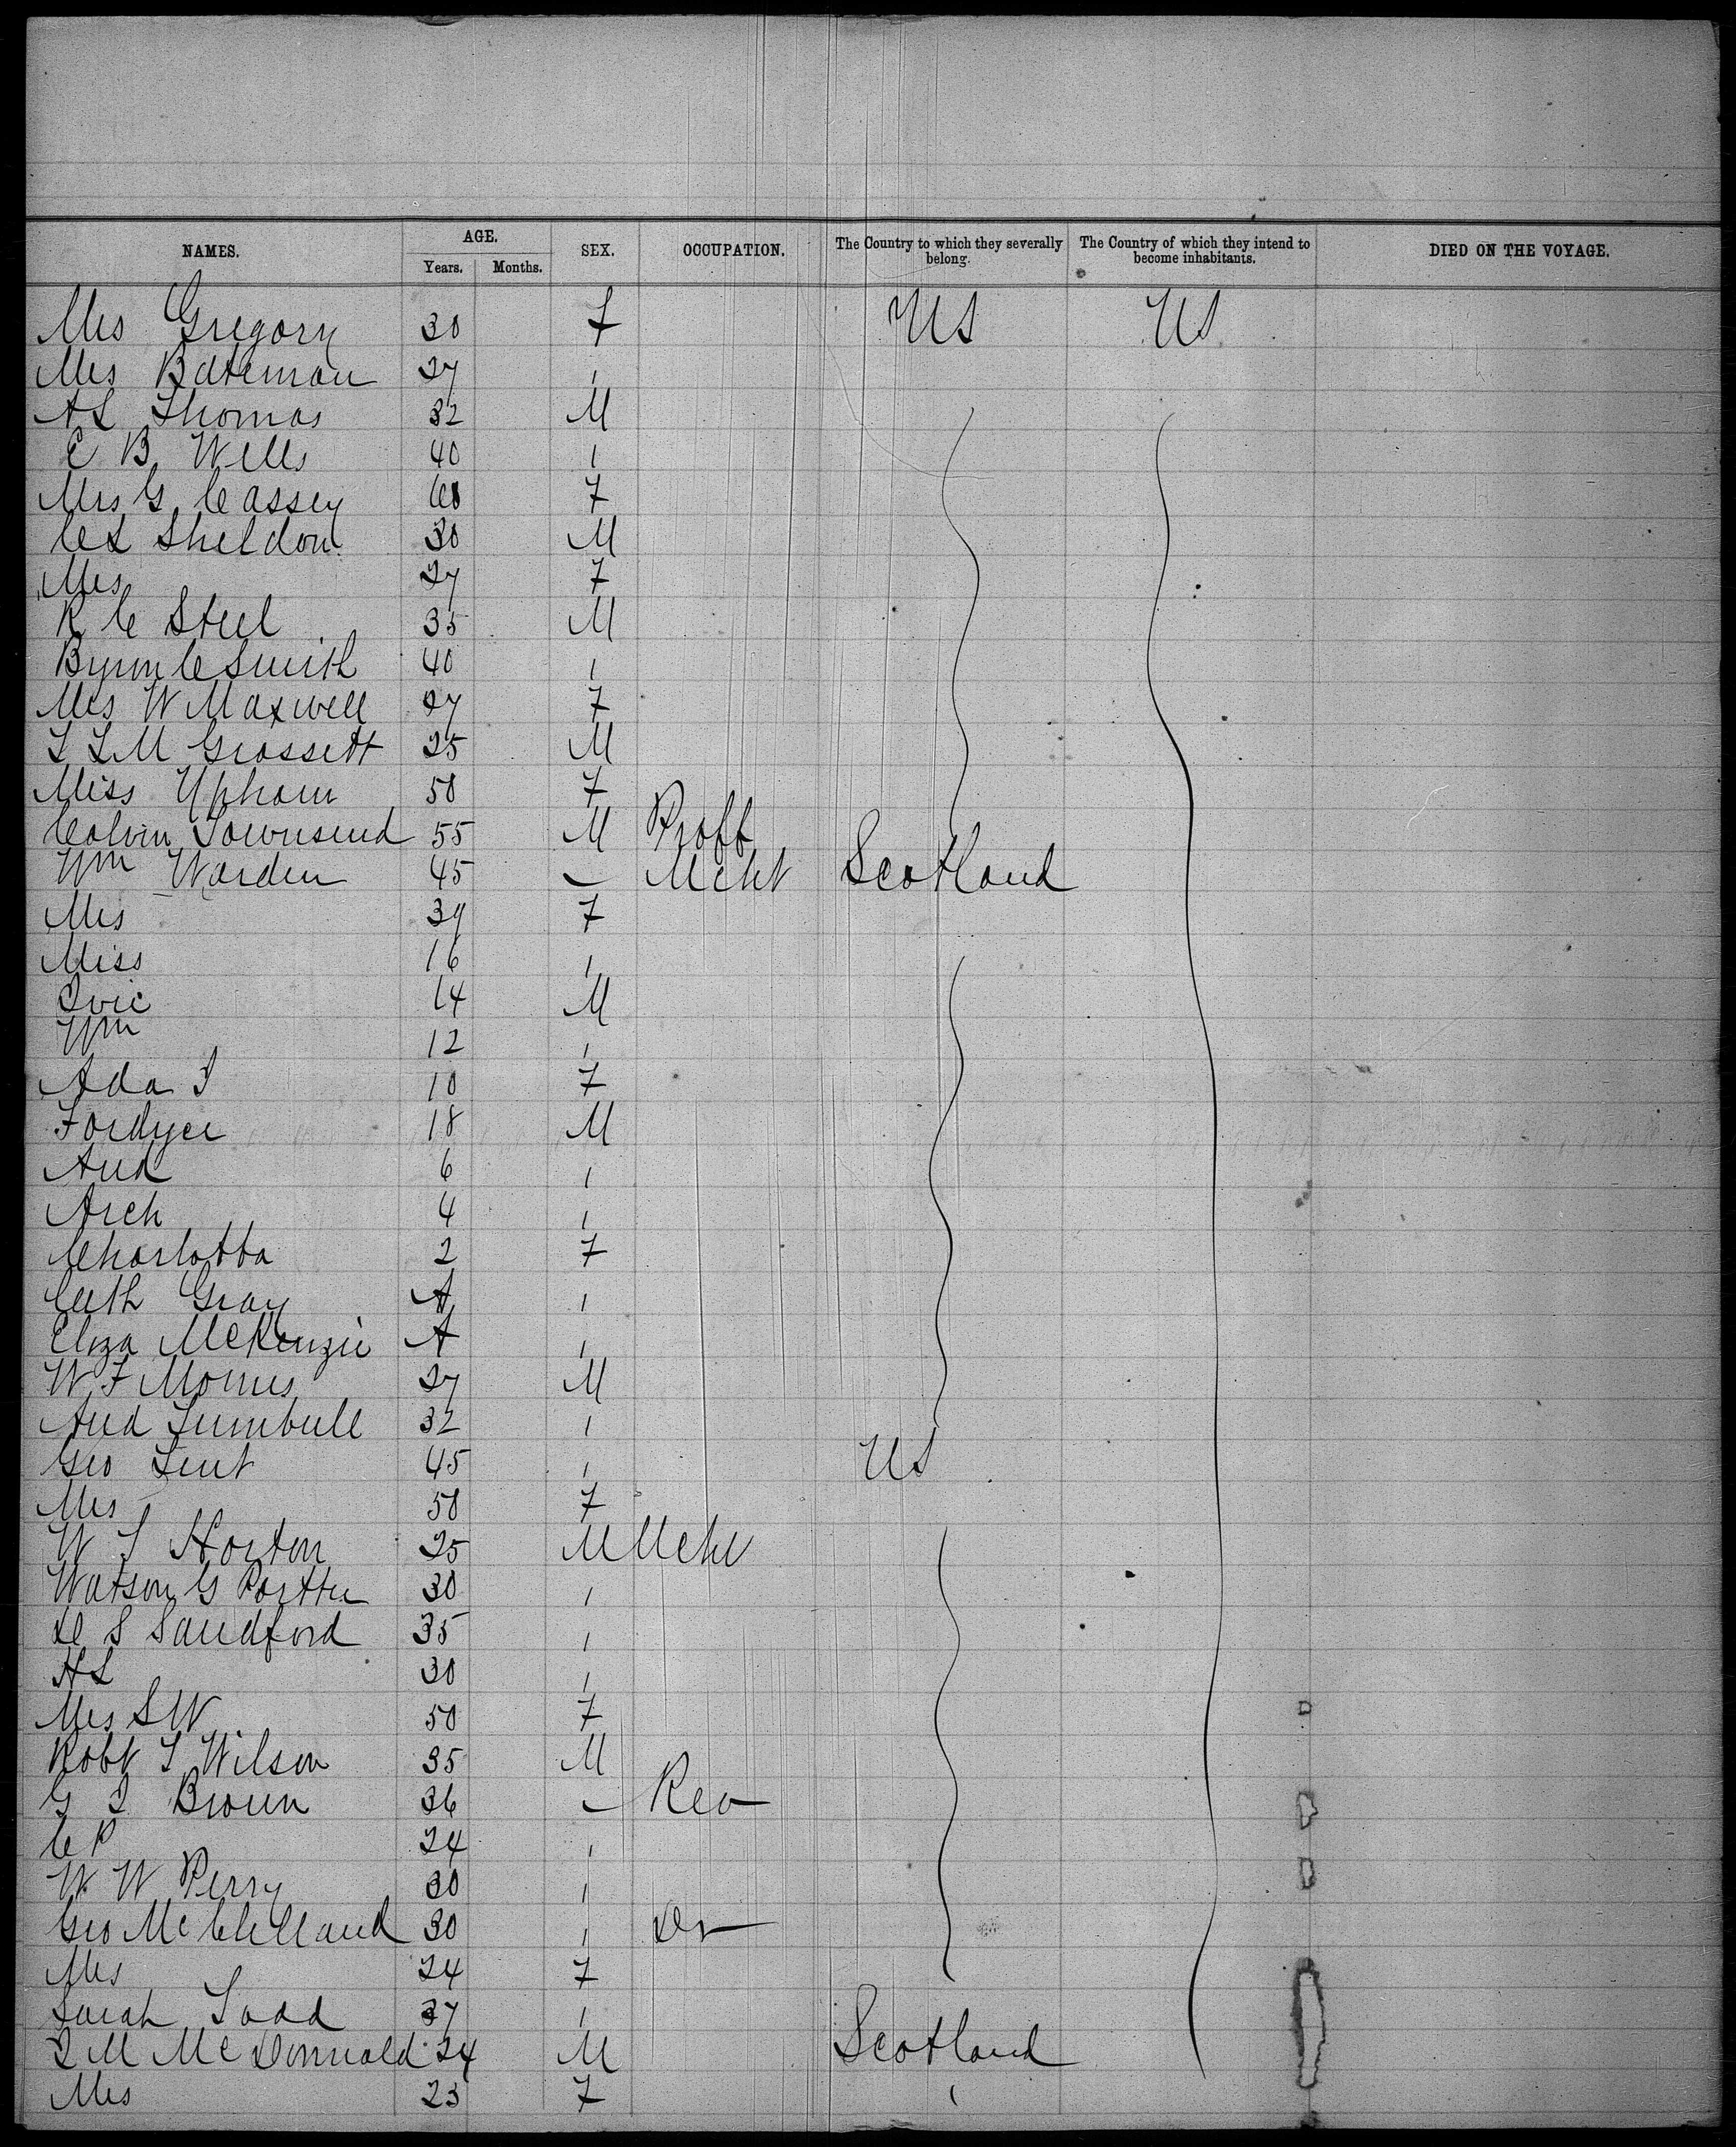 NAMES. AGE. SEX. OCCUPATION. The Country to which they severally belong. The Country of which they intend to become inhabitants. DIED ON THE VOYAGE.
Years. Months.
Mrs Gregory 30 F US US
Mrs Bateman 27 "
A L Thomas 32 M
E B Wells 40 "
Mrs G Cassey 60 F
C L Sheldon 30 M
Mrs 27 F
R C Steel 35 M
Byron C Smith 40 "
Mrs W Maxwell 27 F
T L M Grossett 25 M
Miss Upham 50 F
Calvin Townsend 55 M Proff
Wm Warden 45 " Mcht Scotland
Mrs 39 F
Miss 16 "
14 M
Wm 12 "
Ada J 10 F
Fordyce 18 M
And 6 "
Arch 4 "
Charlotta 2 F
Cath Gray A "
Eliza McKenzie A "
W F Morris 27 M
And Turnbull 32 "
Geo Lent 45 " US
Mrs 50 F
W S Horton 25 M Mcht
Watson G Porter 30 "
S Sandford 35 "
H L 30 "
Mrs S W 50 F
Robt J Wilson 35 M
G L Brown 36 " Rev
C P 24 "
W W Perry 30 "
Geo McClelland 30 " Dr
Mrs 24 F
Sarah Todd 37 "
J M McDonnald 24 M Scotland
Mrs 23 F "